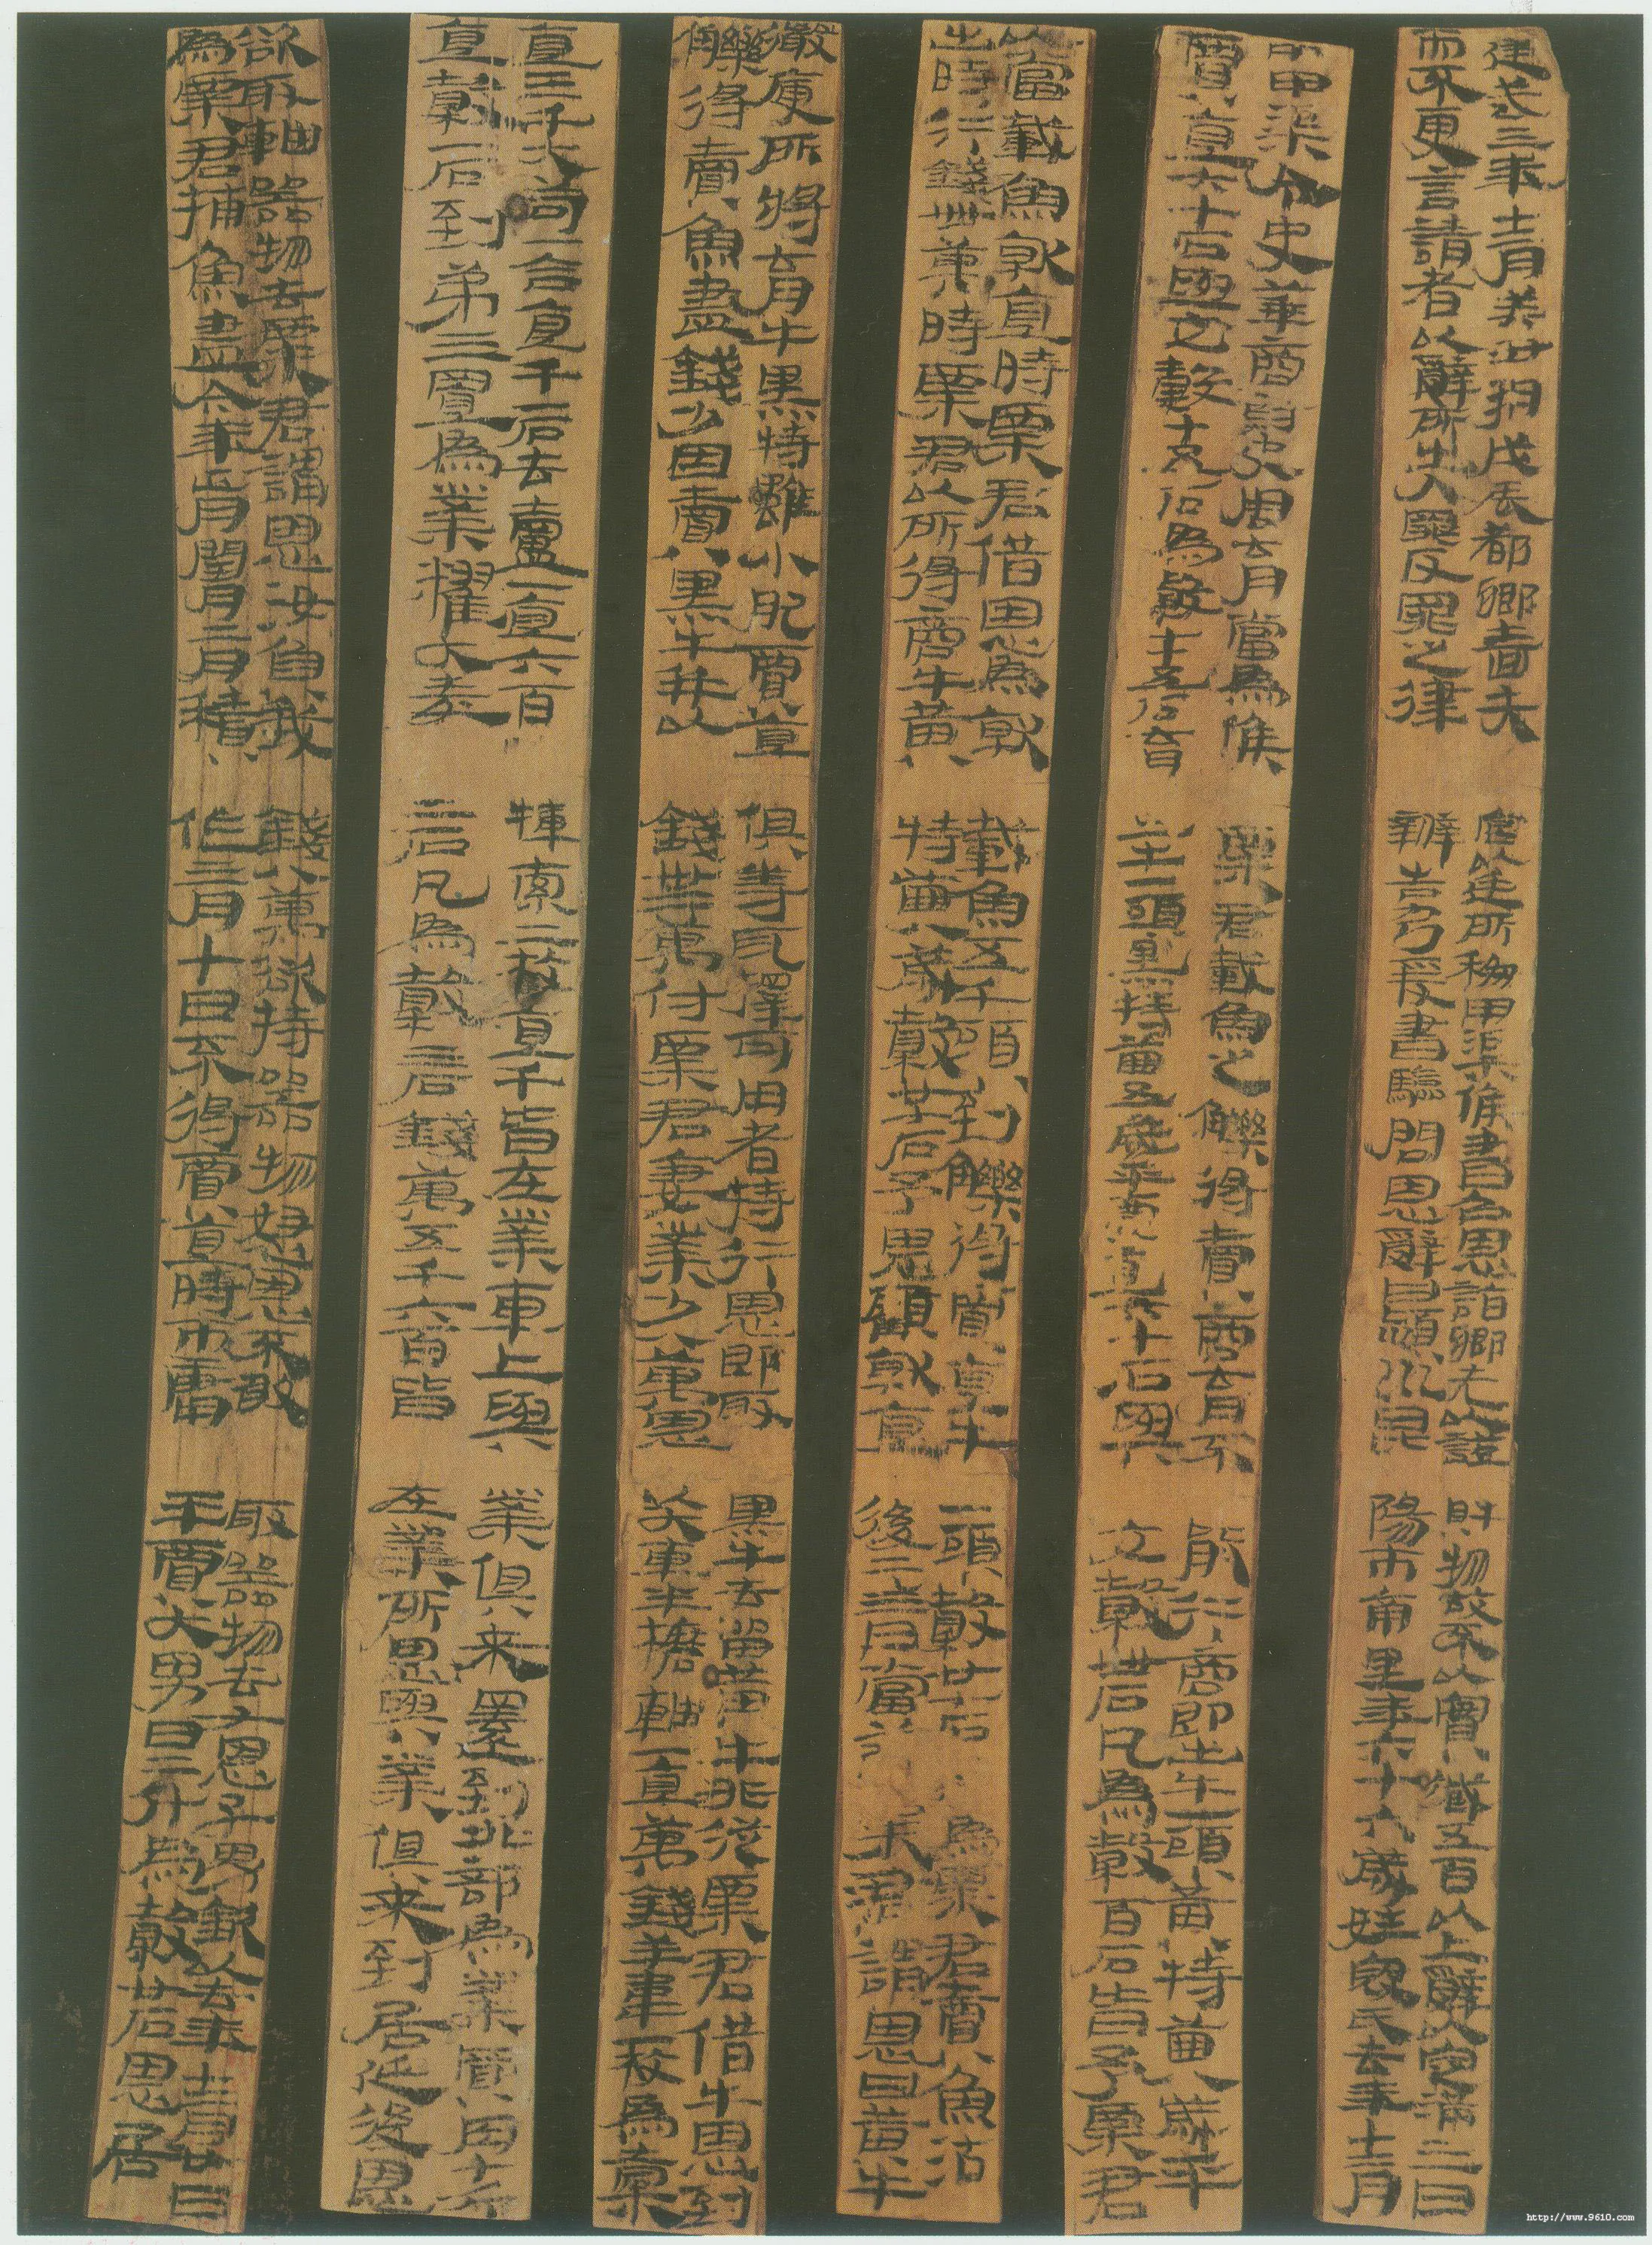 建武三年十二月癸丑朔戊辰都鄉嗇夫宮以廷所移甲渠候書召恩詣鄉先以證財物故不以實臧五百以上辭以定滿三日
而不更言請者以辭所出入罪反罪之律辨告乃爰書驗問恩辭曰潁川昆陽市南里年六十六歲姓寇氏去年十二月
中甲渠令史華商尉史周育當為候粟君載魚之觻得賣商育不能行商即出牛一頭黃特齒八歲平
賈直六十石與它穀十五石為穀七十五石育出牛一頭黑特齒五歲平賈直六十石與它穀卌石凡為穀百石皆予粟君
以當載魚就直時粟君借恩為就載魚五千頭到觻得賈直牛一頭穀廿七石為粟君賣魚沽
出時行錢卌萬時粟君以所得商牛黃特齒八歲穀廿七石予恩顧就直後二三日當粟君謂恩曰黃牛
微庾所將育牛黑特雖小肥賈直俱等耳擇可用者持行恩即取黑牛去留黃牛非從粟君借牛恩到
觻得賣魚盡錢少因賣黑牛并以錢卅二萬付粟君妻業少八萬恩以大車半㯠軸一直萬錢羊韋一枚為橐
直三千大笥一合直千一石去盧一直六百㯟索二枚直千皆在業車上與業俱來還到北部為業買肉十斤
直穀一石到弟三置為業糴大麥二石凡為穀三石錢萬五千六百皆在業所恩與業俱來到居延後恩
欲取軸器物去粟君謂恩汝負我錢八萬欲持器物怒恩不敢取器物去又恩子男欽以去年十二月廿日
為粟君捕魚盡今年正月閏月二月積作三月十日不得賈直時市庸平賈大男日二斗為穀廿石恩居
http://www.9610.com